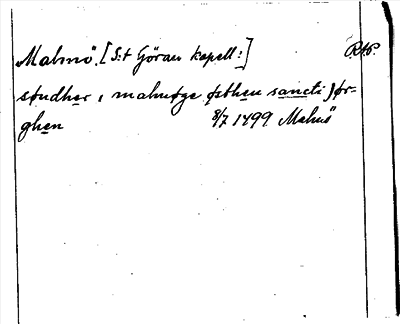 Malmö. [S:t Görans kapell:] RAP.
støndher i malmøge østhen sancti Jør-
ghen 8/7 1499 Malmö